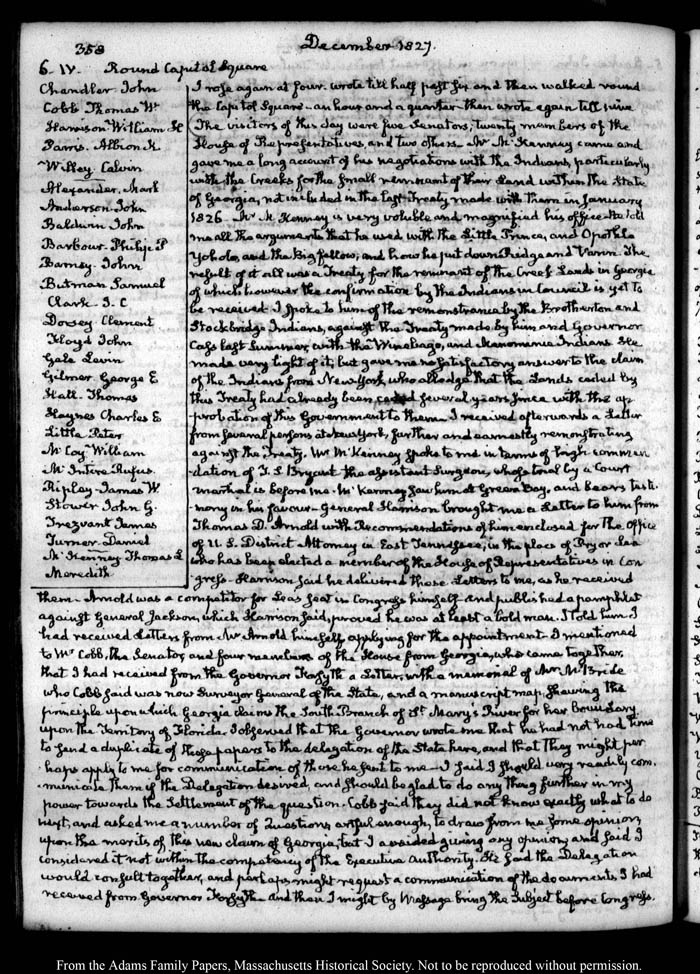 358
December 1827.
6. IV. Round Capitol Square
Chandler John
Cobb Thomas W.
Harrison William H
Parris. Albion K.
Willey Calvin
Alexander. Mark
Anderson John
Baldwin John
Barbour. Philip P
Barney. John
Butman Samuel
Clark. J. C
Dorsey Clement
Floyd John
Gale Levin
Gilmer George E
Hall. Thomas
Haynes Charles E
Little Peter
McCoy William
McIntire Rufus.
Ripley James W.
Stower John G.
Trezvant James
Turner Daniel
McKenney Thomas L
Meredith
I rose again at four. wrote till half past six and then walked round
the Capitol Square—an hour and a quarter then wrote again till nine
The visitors of this day were five Senators, twenty members of the
House of Representatives, and two others—Mr McKenney came and
gave me a long account of his negotiations with the Indians, particularly
with the Creeks for the small remnant of their Land within the State
of Georgia, not included in the last Treaty made with them in January
1826. Mr McKenney is very voluble and magnified his office. He told
me all the arguments that he used with the Little Prince, and Opothle
Yoholo, and the Big fellow, and how he put down Ridge and Vann. The
result of it all was a Treaty for the remnant of the Creek Lands in Georgia
of which however the confirmation by the Indians in Council is yet to
be received. I spoke to him of the remonstrance by the Brotherton and
Stockbridge Indians, against the Treaty made by him and Governor
Cass last Summer, with the Winebago, and Menomonie Indians. He
made very light of it, but gave me no satisfactory answer to the claim
of the Indians from New York, who alledge that the Lands ceded by
this Treaty had already been, ceded several years since with the ap
probation of this Government to them. I received afterwards a Letter
from several persons at New York, further and earnestly remonstrating
against the Treaty. Mr McKenney spoke to me in terms of high commen
dation of J. S. Bryant the assistant Surgeon, whose trial by a Court
martial is before me. McKenney saw him at Green Bay, and bears testi
mony in his favour—General Harrison brought me a Letter to him from
Thomas D. Arnold with Recommendations of him enclosed for the Office
of U. S. District Attorney in East Tennessee, in the place of Pryor Lea
who has been elected a member of the House of Representatives in Con
gress—Harrison said he delivered these Letters to me, as he received
them—Arnold was a competitor for Leas seat in Congress himself and published a pamphlet
against General Jackson, which Harrison said, proved he was at least a bold man. I told him I
had received Letters from Mr Arnold himself, applying for the appointment—I mentioned
to Mr Cobb, the Senator, and four members of the House from Georgia, who came together,
that I had received from the Governor Forsyth a Letter, with a memorial of Mr McBride
who Cobb said was now Surveyor General of the State, and a manuscript map, shewing the
principle upon which Georgia claims the South Branch of St Mary's River for her Boundary
upon the Territory of Florida. I observed that the Governor wrote me that he had not had time
to send a duplicate of those papers to the delegation of the State here, and that they might per
haps apply to me for communication of those he sent to me—I said I should very readily com
municate them if the Delegation desired, and should be glad to do any thing further in my
power towards the Settlement of the question. Cobb said they did not know exactly what to do
next, and asked me a number of Questions, artful enough, to draw from me some opinion
upon the merits of this new claim of Georgia, but I avoided giving any opinion, and said I
considered it not within the competency of the Executive Authority. He said the Delegation
would consult together, and perhaps might request a communication of the documents I had
received from Governor Forsyth—and then I might by Message bring the Subject before Congress.
From the Adams Family Papers, Massachusetts Historical Society. Not to be reproduced without permission.